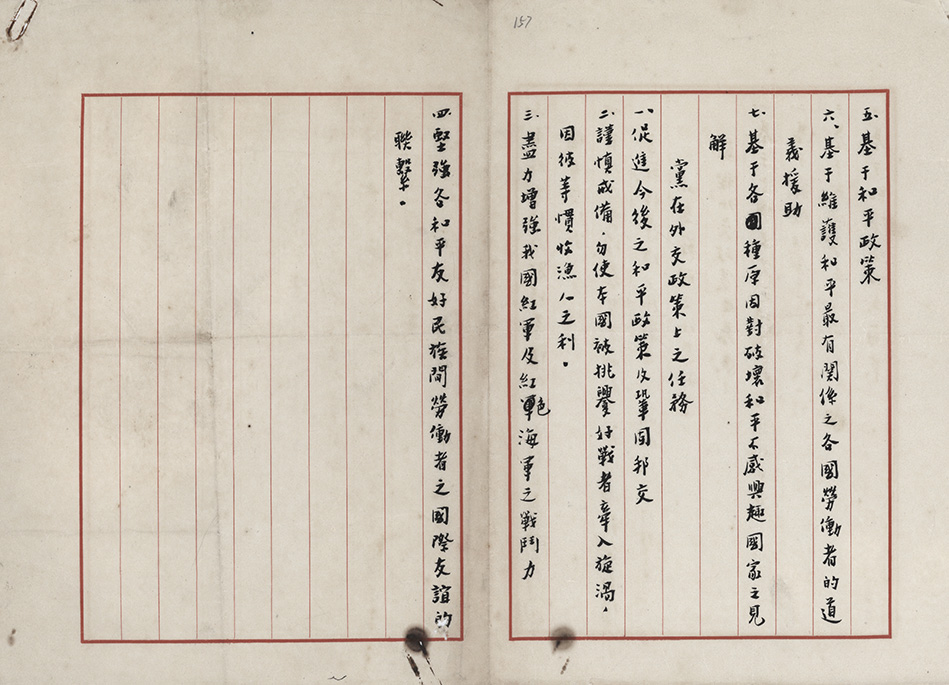 157
五、基于和平政策
六、基于維護和平最有関係之各國勞働者的道
義援助
七、基于各種原因對破壞和平不感興趣國家之見
解
黨在外交政策上之任務
一、促進今後之和平政策及鞏固邦交
二、謹慎戒備，勿使本國被挑釁好戰者牽入旋渦，
因彼等慣收漁人之利。
三、盡力增強我國紅軍及紅色海軍之戰鬥力
四、堅強各和平友好民族間勞働者之國際友誼的
聯繫。